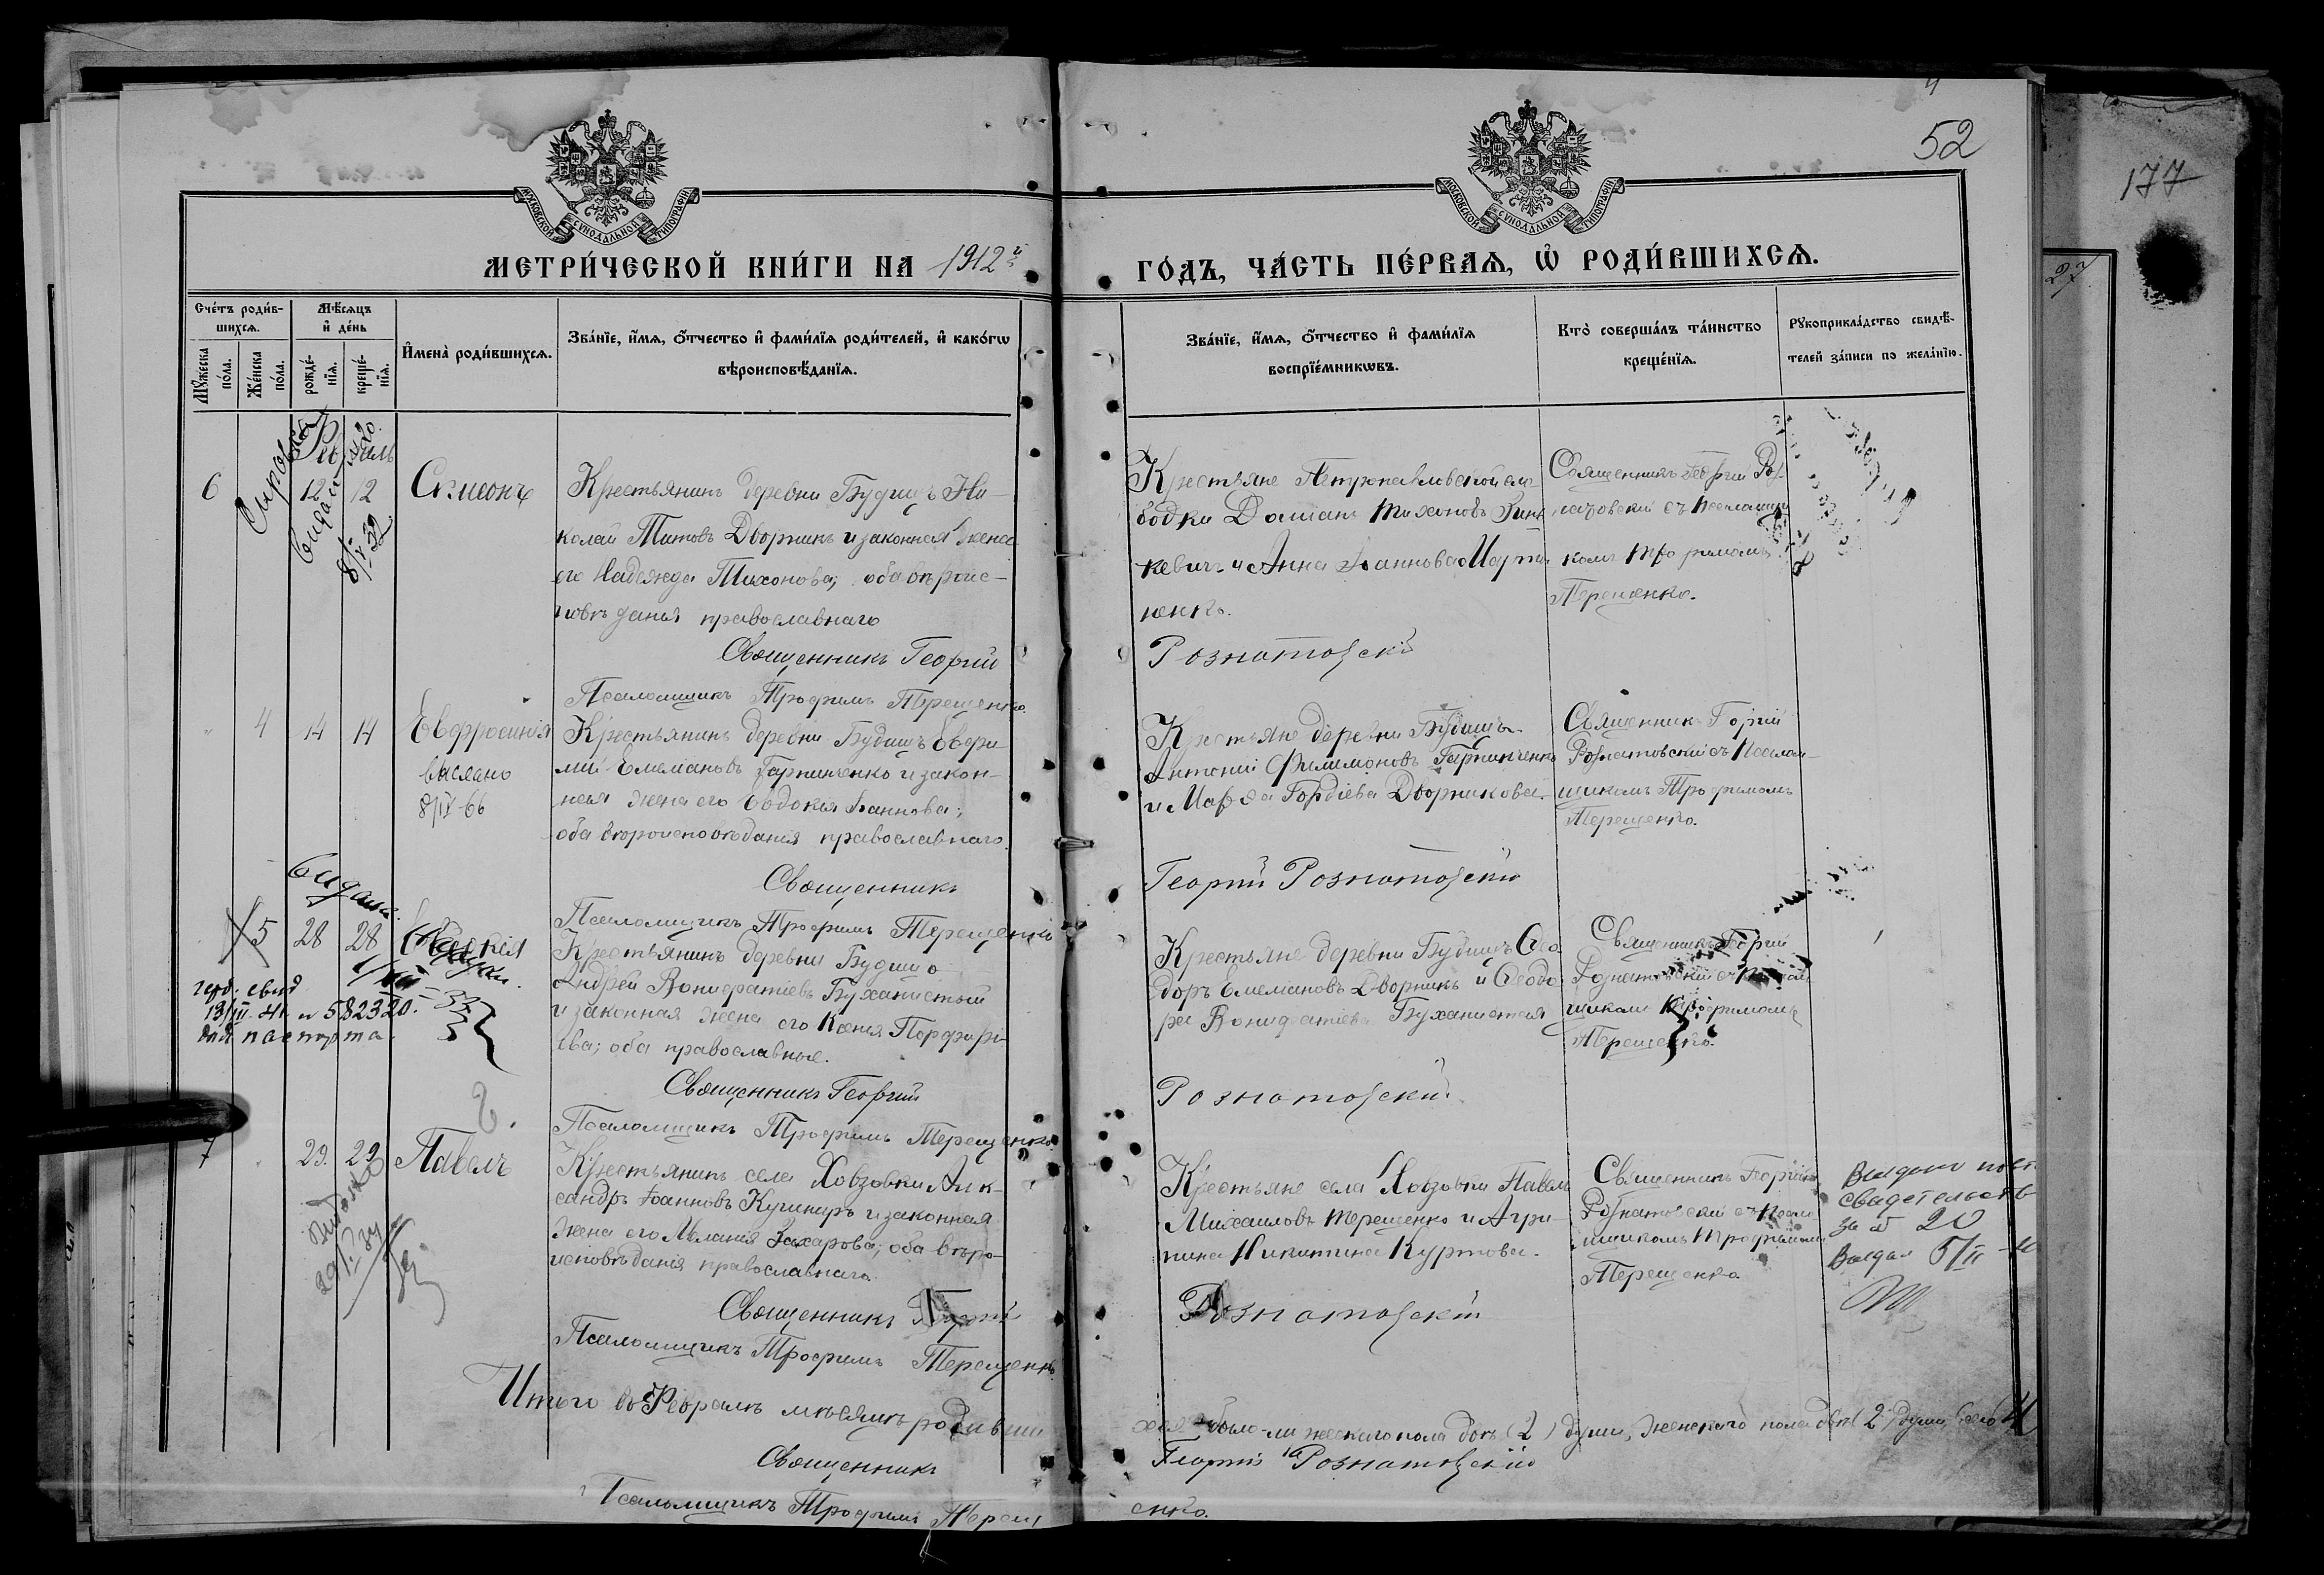 52
177
27
МОСКОВСКОЙ СѴНОДАЛЬНОЙ ТИПОГРАФІИ
МОСКОВСКОЙ СѴНОДАЛЬНОЙ ТИПОГРАФІИ
МЕТРИ́ЧЕСКОЙ КНИ́ГИ НА 1912й
ГО́ДЪ, ЧА́СТЬ ПЕ́РВАѦ, Ѡ҆ РОДИ́ВШИХСѦ.
Сче́тъ роди́в-
шихсѧ.
Мꙋжеска по́ла.
Же́нска по́ла.
Мѣ́сѧцъ
и҆ де́нь
рожде́-
нїѧ.
креще́-
нїѧ.
И҆мена̀ роди́вшихсѧ.
Зва́нїе, и҆́мѧ, ѻ҆́тчество и҆ фами́лїѧ роди́телей, и҆ како́гѡ
вѣроисповѣ́данїѧ.
Зва́нїе, и҆́мѧ, ѻ҆́тчество и҆ фами́лїѧ
воспрїе́мникѡвъ.
Кто̀ соверша́лъ та́инство
креще́нїѧ.
Рꙋкоприкла́дство свидѣ́-
телей за́писи по жела́нїю.
Февраль
6 12 12 Симеонъ
Крестьянинъ деревни Будищъ Ни-
колай Титовъ Дворникъ и законная жена
его Надежда Тихонова; оба вѣроис-
повѣданія православнаго
Священникъ Георгій
Псаломщикъ Трофимъ Терещенко.
Крестьяне Петропавловской сло-
бодки Даміанъ Тихоновъ Зинь
кевичъ и Анна Іоаннова Марти
ненко.
Рознатовскій
Священникъ Георгій Роз-
натовскій съ Псаломщи
комъ Трофимомъ
Терещенко.
4 14 14 Евфросинія
выслано
8/IV-66
Крестьянинъ деревни Будищъ Евфи-
мій Емеліановъ Гарпинченко и закон-
ная жена его Евдокія Іоаннова;
оба вѣроисповѣданія православнаго.
Священникъ
Псаломщикъ Трофимъ Терещенко
Крестьяне деревни Будищъ
Антоній Филимоновъ Гарпинченко
и Марѳа Гордіева Дворникова.
Георгій Рознатовскій
Священникъ Георгій
Рознатовскій съ Псалом-
щикомъ Трофимомъ
Терещенко.
5 28 28
свид
582320.
для паспорта.
Крестьянинъ деревни Будищъ
Андрей Вонифатіевъ Буханистый
и законная жена его Ксенія Порфирі-
ева; оба православные.
Священникъ Георгій
Псаломщикъ Трофимъ Терещенко
Крестьяне деревни Будищъ Ѳео
доръ Емеліановъ Дворникъ и Ѳеодо
ра Вонифатіева Буханистая
Рознатовскій.
Священникъ Георгій
Рознатовскій съ Псалом
щикомъ Трофимомъ
Терещенко.
7 29. 29 Павелъ
Крестьянинъ села Ховзовки Алек-
сандръ Іоанновъ Кушниръ и законная
жена его Меланія Захарова; оба вѣро-
исповѣданія православнаго.
Священникъ Георгій
Псаломщикъ Трофимъ Терещенко
Крестьяне села Ховзовки Павелъ
Михаиловъ Терещенко и Агри-
пина Никитина Куртова.
Рознатовскій
Священникъ Георгій
Рознатовскій съ Псалом
щикомъ Трофимомъ
Терещенко
свидетельств
за № 20
Итого въ Февралѣ мѣсяцѣ родивши
хся было - мужескаго пола двѣ (2) души, женскаго пола двѣ (2) души, всего 4
Священникъ
Георгій Рознатовскій
Псаломщикъ Трофимъ Терещ
енко.